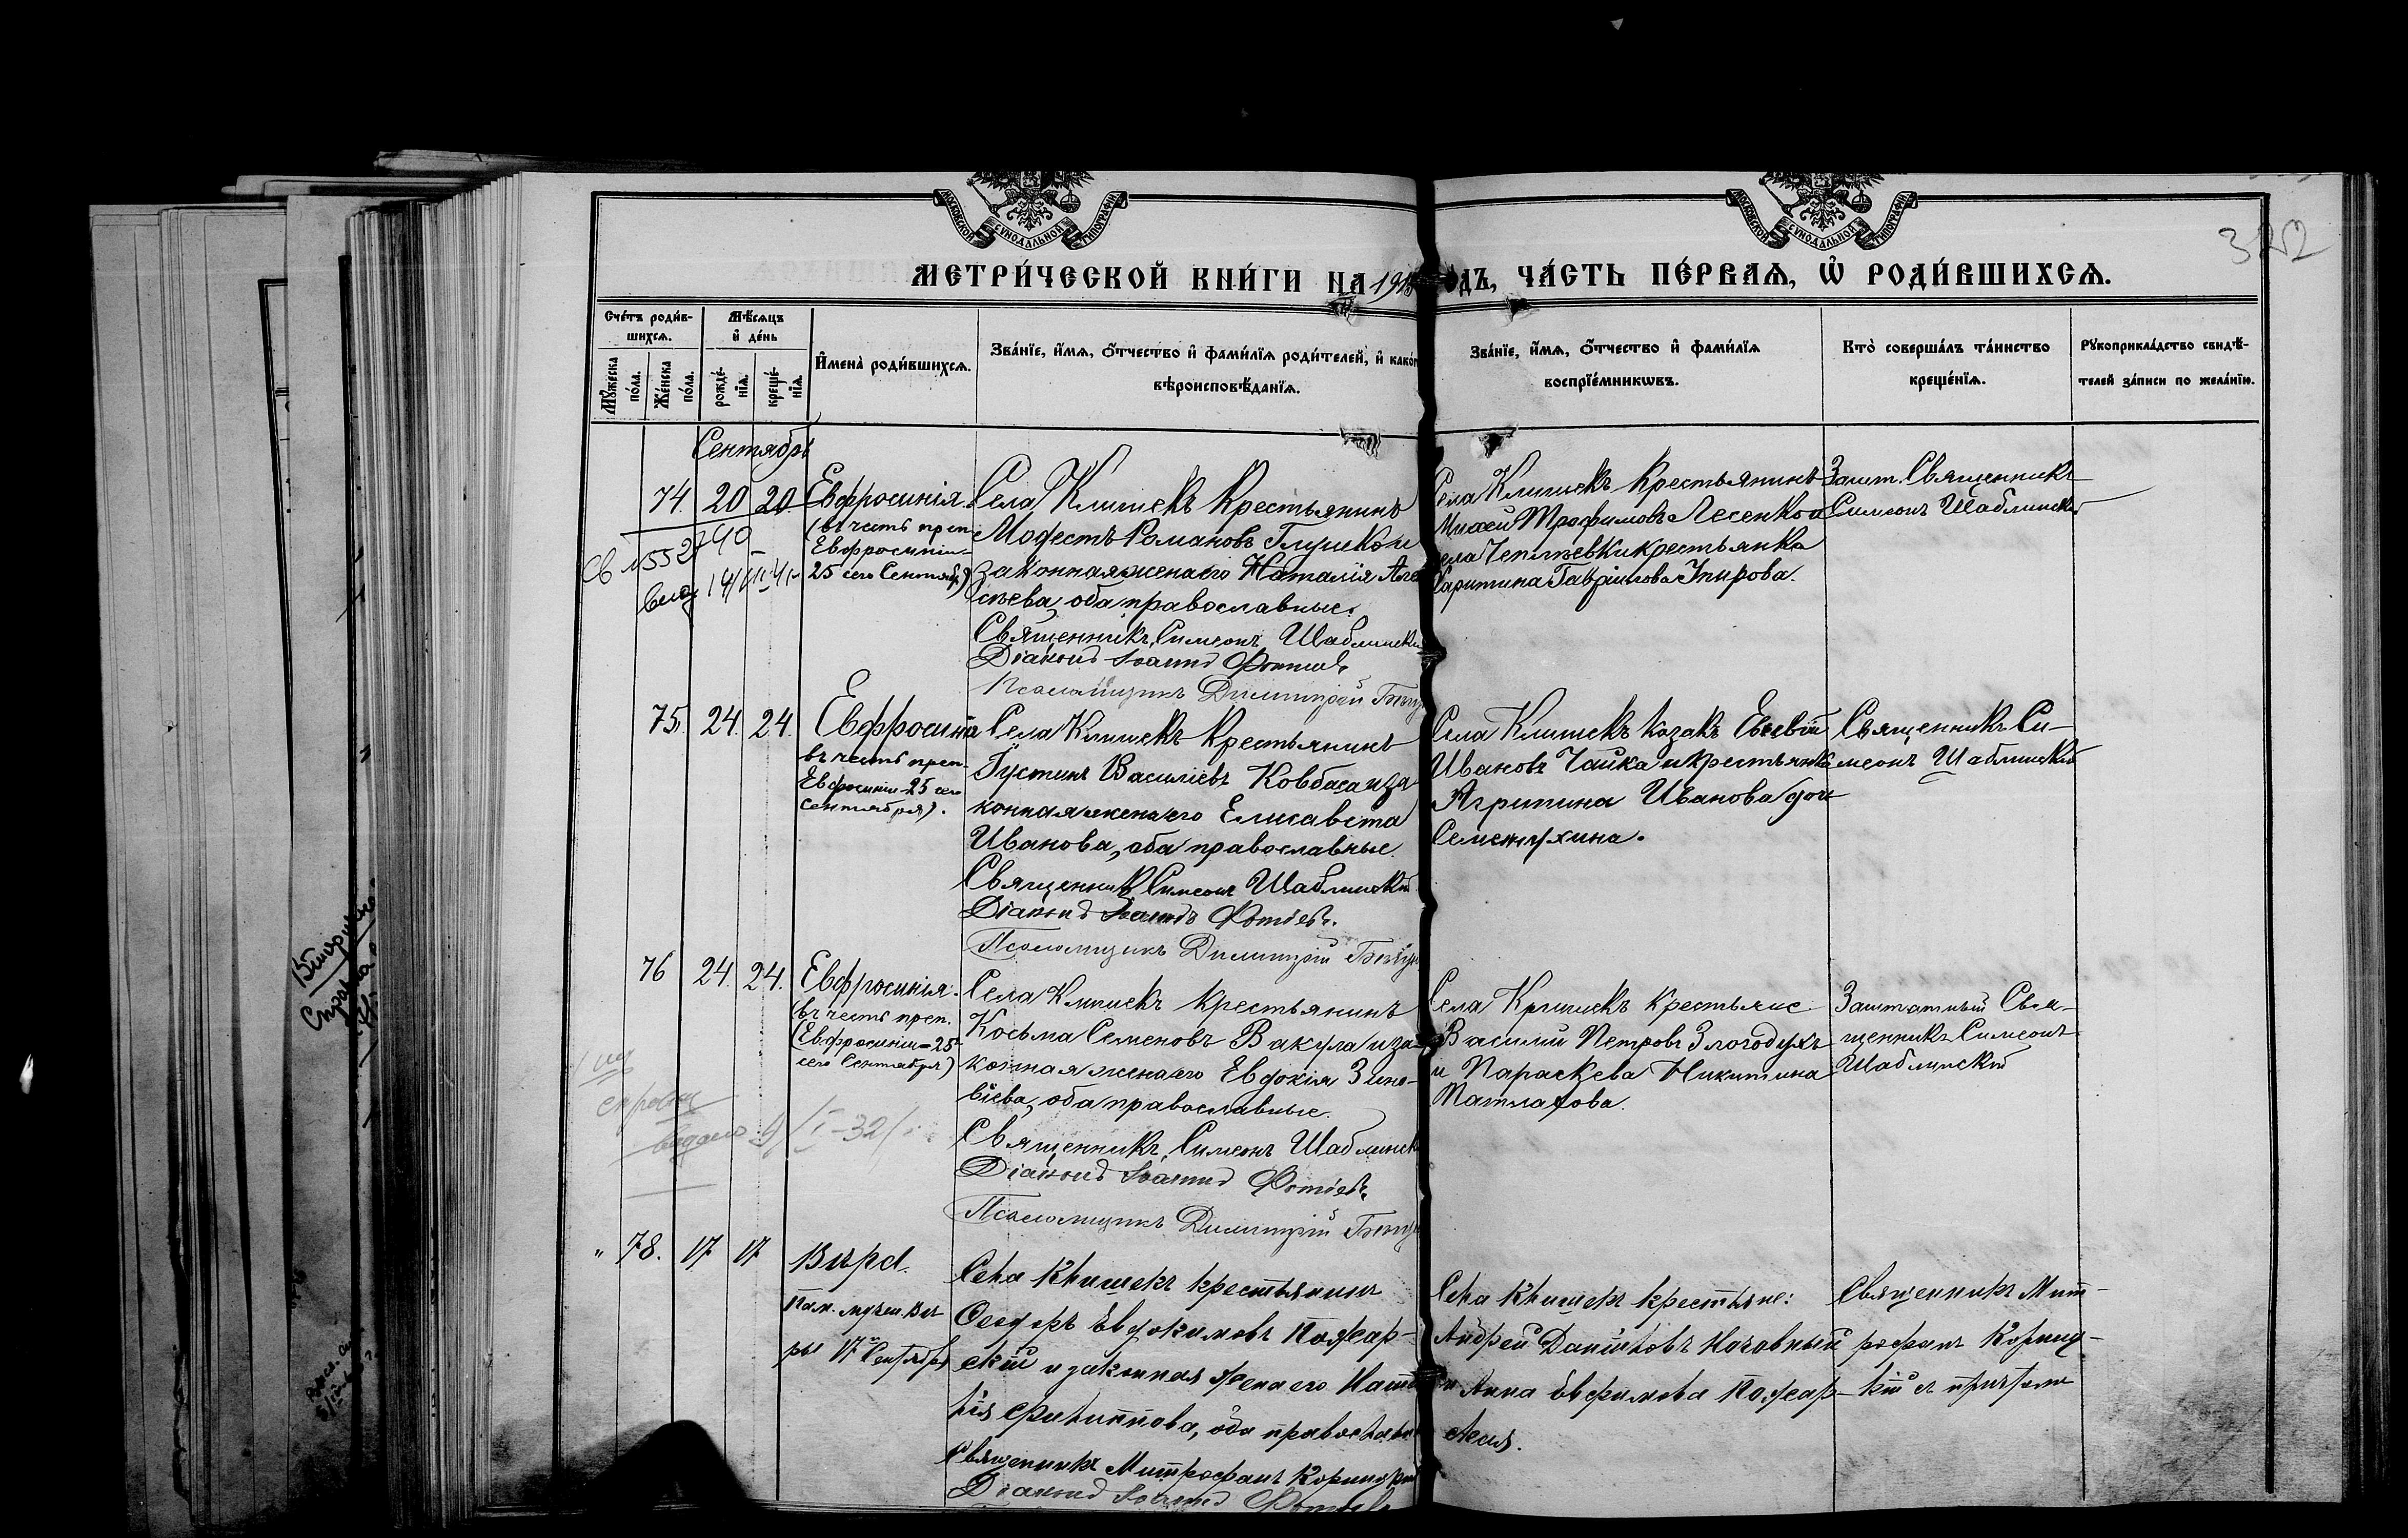 МОСКОВСКОЙ СУНОДАЛЬНОЙ ТИПОГРАФІИ
МОСКОВСКОЙ СУНОДАЛЬНОЙ ТИПОГРАФІИ
322
МЕТРИ́ЧЕСКОЙ КНИ́ГИ НА 191 ОДЪ, ЧА́СТЬ ПЕ́РВАѦ, Ѽ РОДИ́ВШИХСѦ.
Сче́тъ роди́в-
шихсѧ.
Мꙋ́жеска
по́ла.
Же́нска
по́ла.
Мѣ́сѧцъ
и҆ де́нь
рожде́-
нїѧ.
креще́-
нїѧ.
И҆мена̀ роди́вшихсѧ.
Зва́нїе, и҆́мѧ, ѻ҆́тчество и҆ фами́лїѧ роди́телей, и҆ како́г
вѣроисповѣ́данїѧ.
Зва́нїе, и҆́мѧ, ѻ҆́тчество и҆ фами́лїѧ
воспрїе́мникѡвъ.
Кто̀ соверша́лъ та́инство
креще́нїѧ.
Рꙋкоприкла́дство свидѣ́-
телей за́писи по жела́нїю.
Сентябрь
74. 20 20.
Евфросинія.
(въ честь преп.
Евфросиніи-
25 сего Сентября)
Села Клишекъ Крестьянинъ
Модестъ Романовъ Глушко и
законная жена его Наталія Ага
сіева, оба православные.
Священникъ Симеонъ Шаблинскі
Діаконъ Іоаннъ Фотіевъ
Псаломщикъ Димитрій
Села Клишекъ Крестьянинъ
Михей Трофимовъ Лесенко и
села Чеплѣевки крестьянка
Харитина Гавріилова
Зашт. Священникъ
Симеонъ Шаблинскій
75. 24. 24.
Евфросинія
въ честь преп.
Евфросиніи-25 сего
Сентября).
Села Клишекъ Крестьянинъ
Іустинъ Василіевъ Ковбаса и за
конная жена его Елисавета
Иванова, оба православные.
Священникъ Симеонъ Шаблинскій
Діаконъ Іоаннъ Фотіевъ.
Псаломщикъ Димитрій
Села Клишекъ Козакъ Евсевій
Ивановъ Чайка и крестьянка
Агрипина Иванова дочь
Семенухина.
Священникъ Си-
меонъ Шаблинскій
76 24. 24.
Евфросинія.
(въ честь преп.
Евфросиніи-25
сего Сентября)
Села Клишекъ крестьянинъ
Косьма Семеновъ Вакула и за-
конная жена его Евдокія Зино-
віева, оба православные.
Священникъ Симеонъ Шаблинск
Діаконъ Іоаннъ Фотіевъ
Псаломщикъ Димитрій
Села Клишекъ крестьяне
Василій Петровъ Злогодухъ
и Параскева Никитина
Патлахова.
Заштатный Свя-
щенникъ Симеонъ
Шаблинскій
" 78. 17 17
Вѣра.
Пам. мучен. Вѣ
ры 17 Сентября
Села Клишекъ крестьянинъ
Ѳеодоръ Евдокимовъ Пожар-
скій и законная жена его Ната
лія Филиппова, оба православн
Священникъ Митрофанъ
Діаконъ Іоаннъ Фотіевъ
Села Клишекъ крестьяне:
Андрей Даниловъ Ночовный
и Анна Евфимова Пожар-
ская.
Священникъ Мит-
рофанъ
кій съ причтомъ